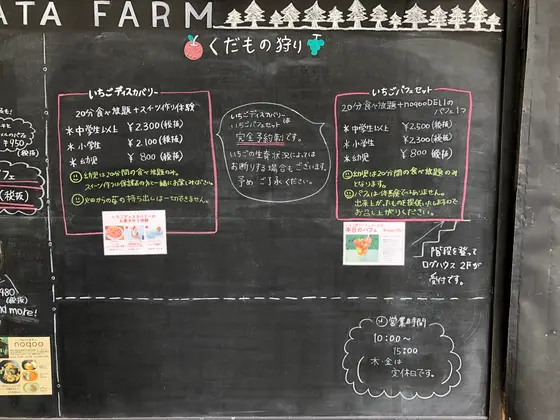 ATA FARM
くだもの狩り
いちごディスカバリー
20分食べ放題+スイーツ作り体験
* 中学生以上 ¥2,300(税抜)
* 小学生 ¥2,100(税抜)
* 幼児 ¥ 800(税抜)
幼児は20分間の食べ放題のみ。
スイーツ作りは保護者の方と一緒にお楽しみください。
いちごの持ち出しは一切できません。
いちごディスカバリー
いちごパフェセット は
完全予約制です。
いちごの生育状況によっては
お断りする場合もございます。
予めご了承ください。
いちごパフェセット
20分食べ放題+nogooDELIの
パフェ1つ
* 中学生以上 ¥ 2,500(税抜)
* 小学生 ¥ 2,300(税抜)
* 幼児 ¥ 800(税抜)
幼児は20分間の食べ放題のみ
となります。
出来上がったものを提供いたしますので
お召し上がりください。
本日のパフェ
階段を登って
ログハウス2Fが
受付です。
営業時間
10:00～
15:00
木・金は
定休日です。
¥950
(税抜)
(税抜)
980
(税抜)
nd more!
nogoo